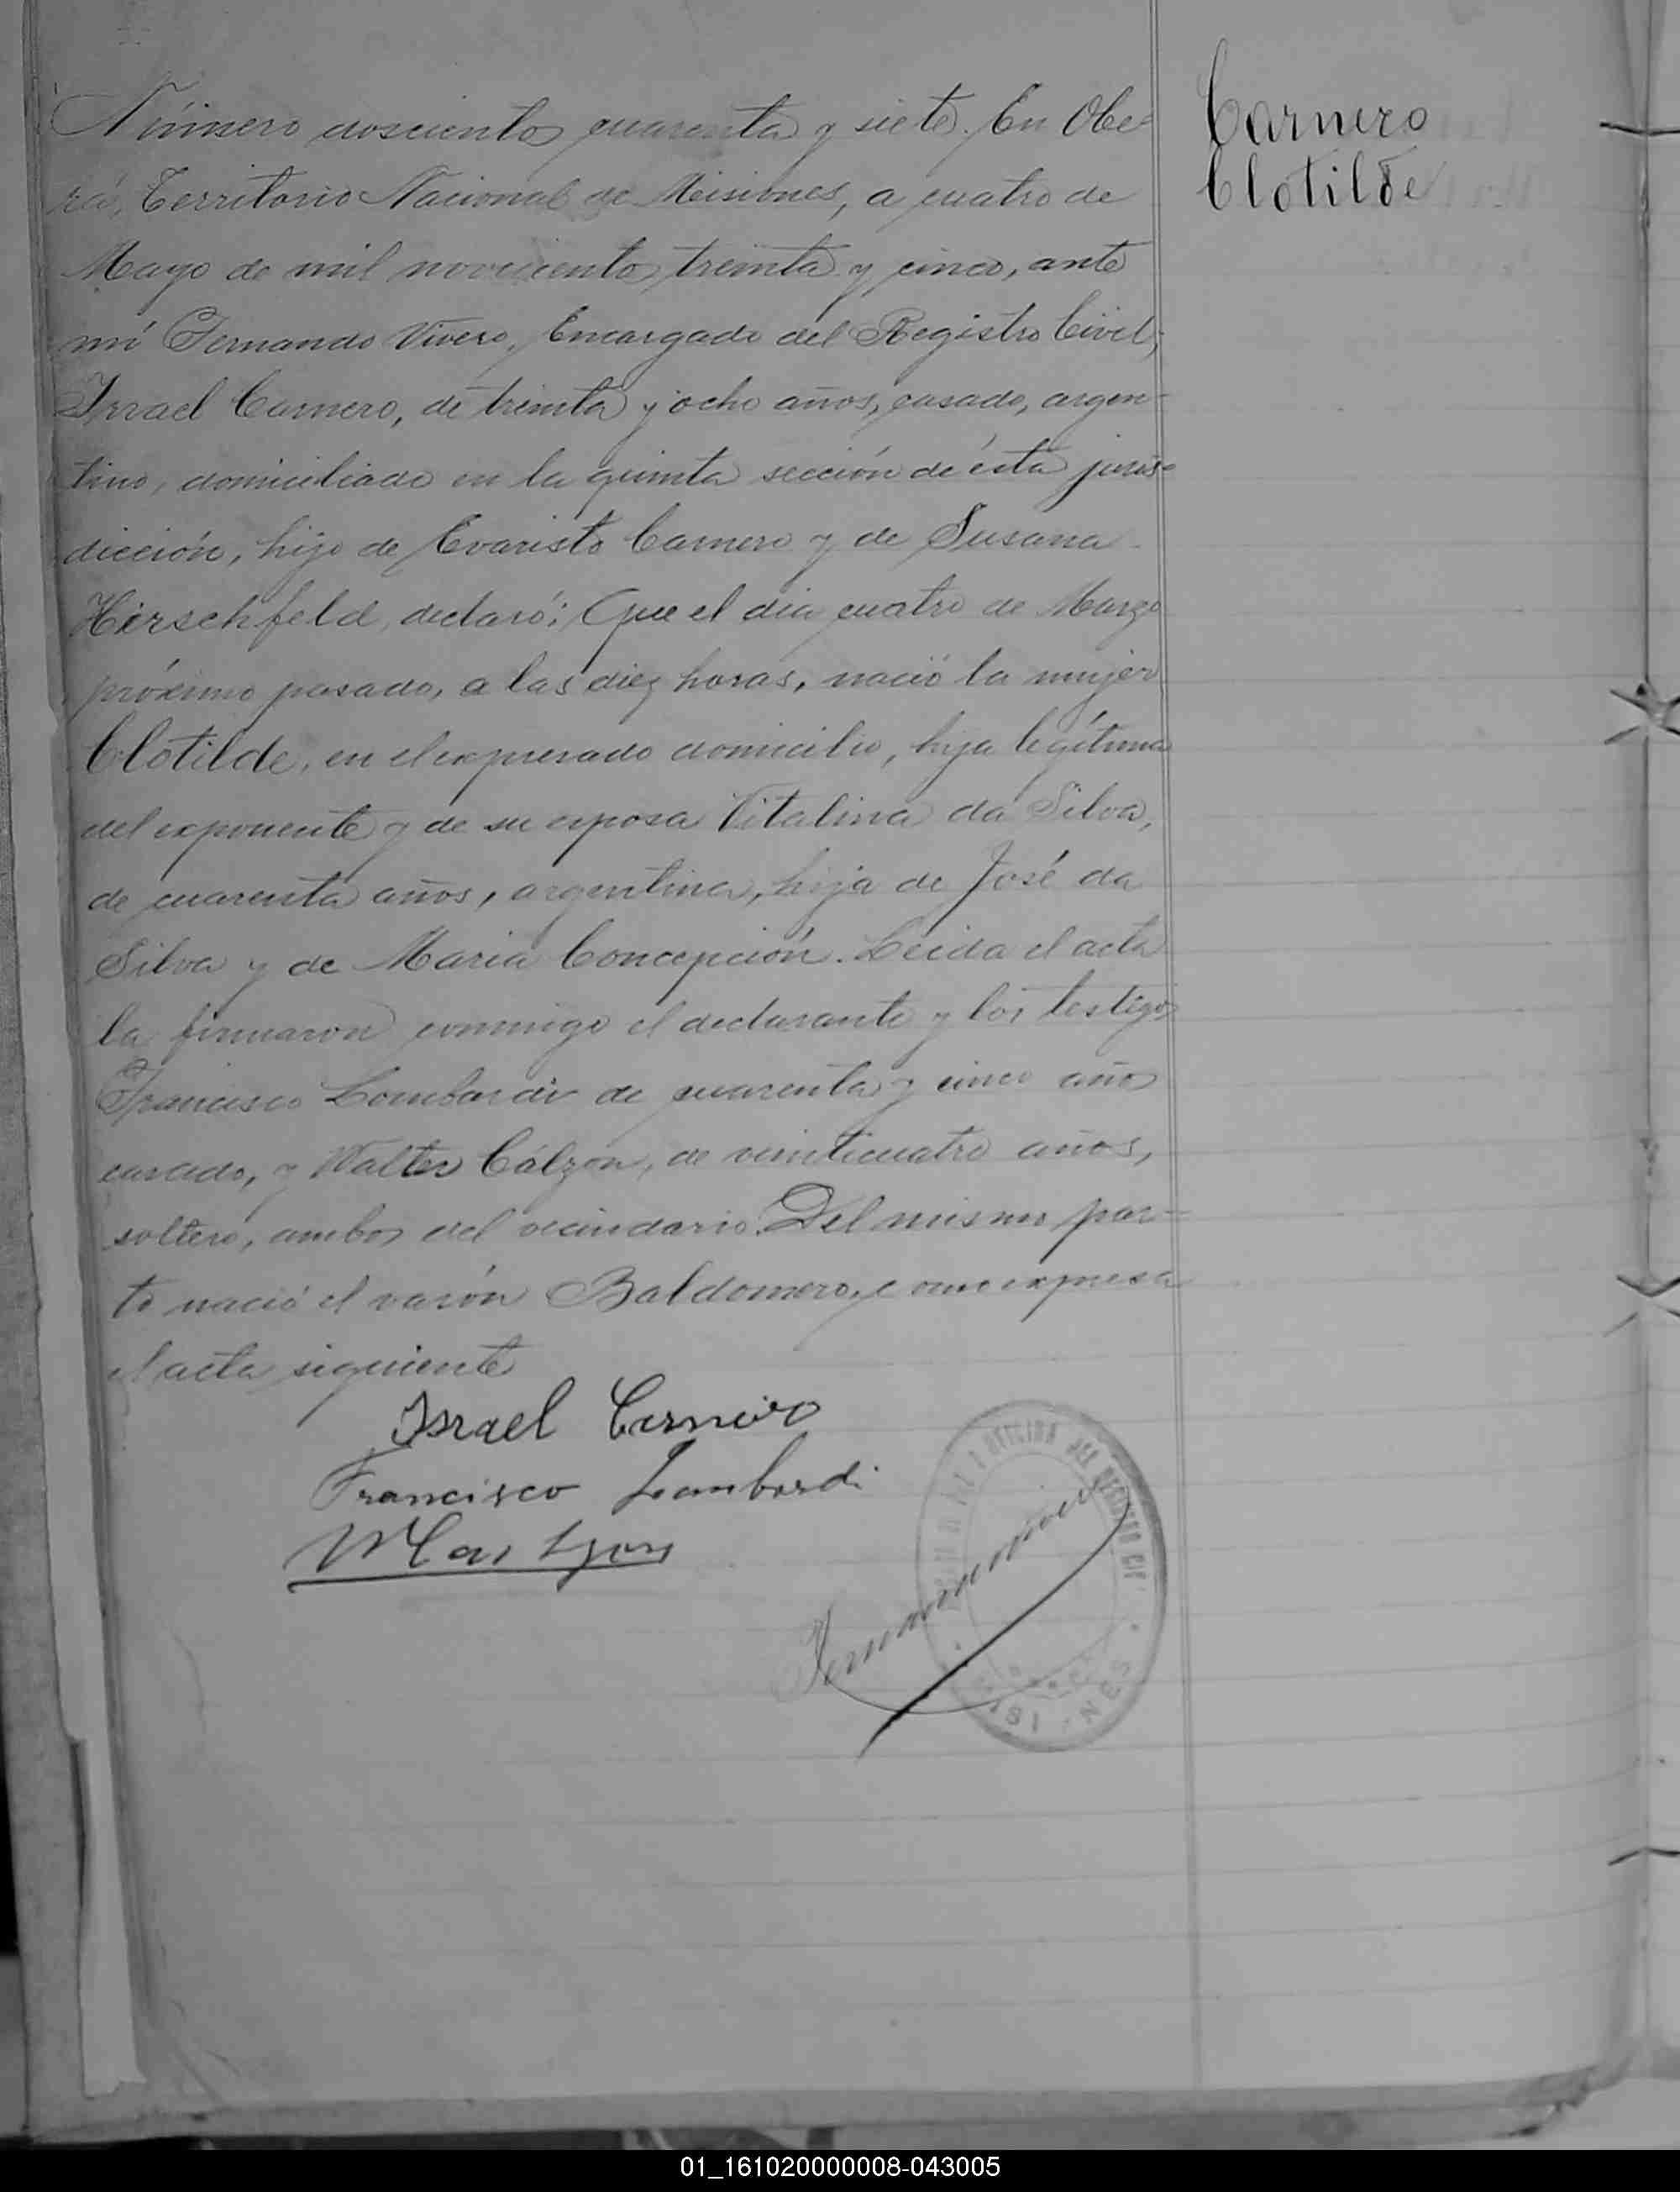 Número doscientos cuarenta y siete. En Obe-
rá, Territorio Nacional de Misiones, a cuatro de
Mayo de mil novecientos treinta y cinco, ante
mí Fernando Vivero, Encargado del Registro Civil;
Isrrael Carnero, de treinta y ocho años, casado, argen-
tino, domiciliado en la quinta sección de ésta juris-
dicción, hijo de Evaristo Carnero y de Susana
Hirschfeld, declaró: Que el día cuatro de Marzo
próximo pasado, a las diez horas, nació la mujer
Clotilde, en el expresado domicilio, hija legítima
del exponente y de su esposa Vitalina da Silva,
de cuarenta años, argentina, hija de José da
Silva y de María Concepción. Leída el acta
la firmaron conmigo el declarante y los testigos
Francisco Lombardi de cuarenta y cinco años
casado, y Walter Cálzon, de veinticuatro años,
soltero, ambos del vecindario. Del mismo par-
to nació el varón Baldomero, como expresa
el acta siguiente
Carnero
Clotilde
Israel Carneiro
Francisco Lombardi
OFICINA DEL REGISTRO CIVIL
01_161020000008-043005